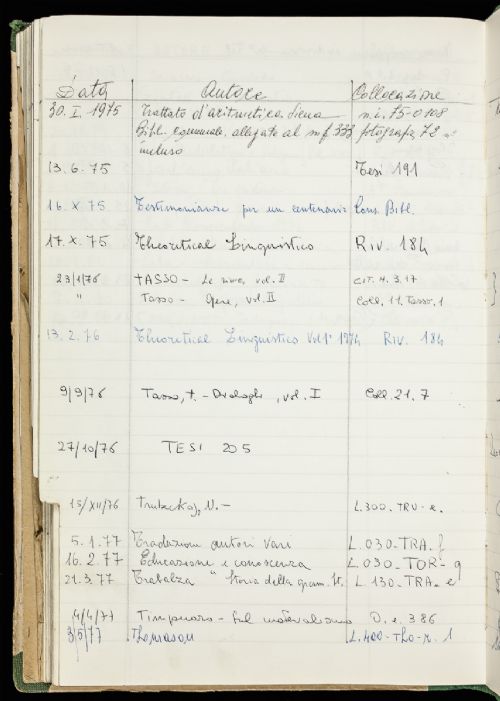 Data Autore Collocazione
30. I. 1975 Trattato d'aritmetica. Siena n. i. 75-0108
Bibl. comunale, allegato al mf. 333 fotografia 72
incluso
13. 6. 75 Tesi 191
16. X 75 Testimonianze per un centenario Cons. Bibl.
17. X. 75 Theoretical Linguistics Riv. 184
23/1/76 TASSO - Le rime, vol. II CIT. 4. 3. 17
" Tasso - Opere, vol. II Coll. 11. Tasso. 1
13. 2. 76 Theoretical Linguistics Vol 1° 1974 Riv. 184
9/9/76 Tasso, T. - Dialoghi, vol. I Coll. 21. 7
27/10/76 TESI 205
15/XII/76 Trubckoj, N. - L. 300. TRU - e.
5. 1. 77 Traduzioni autori vari L. 030 - TRA. f
16. 2. 77 Educazione e conoscenza L. 030 - TOR - g
21. 3. 77 Trabalza " Storia della gram. It. L. 130 - TRA. e
14/4/77 Timpanaro - Sul materialismo D. e. 386
3/5/77 Thomason L. 400 - Tho - r. 1